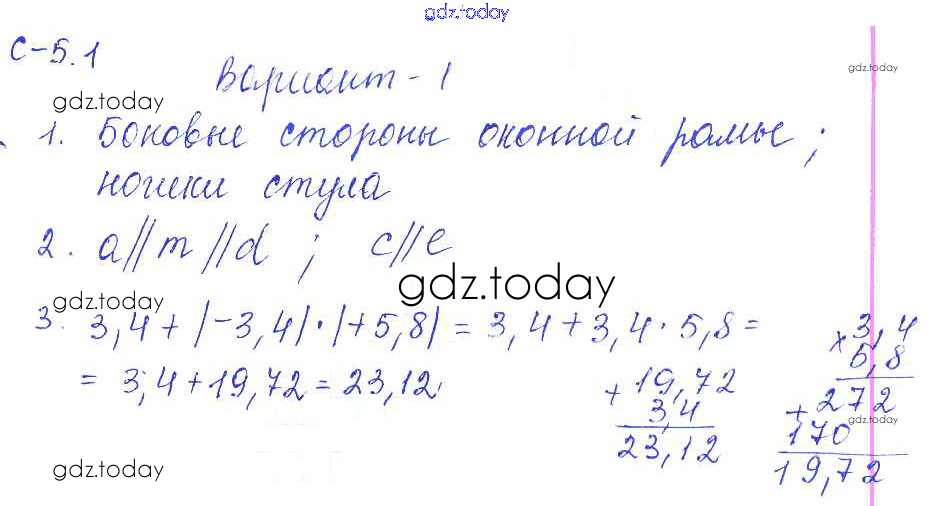 gdz.today
С-5.1
gdz.today
Вариант-1
gdz.today
1. Боковые стороны оконной рамы;
ножки стула
2. a//m//d ; c//e
gdz.today
gdz.today
3. 3,4+|-3,4|·|+5,8| = 3,4+3,4·5,8=
= 3,4+19,72=23,12
+19,72
3,4
23,12
×3,4
5,8
+272
gdz.today
170
19,72
gdz.today